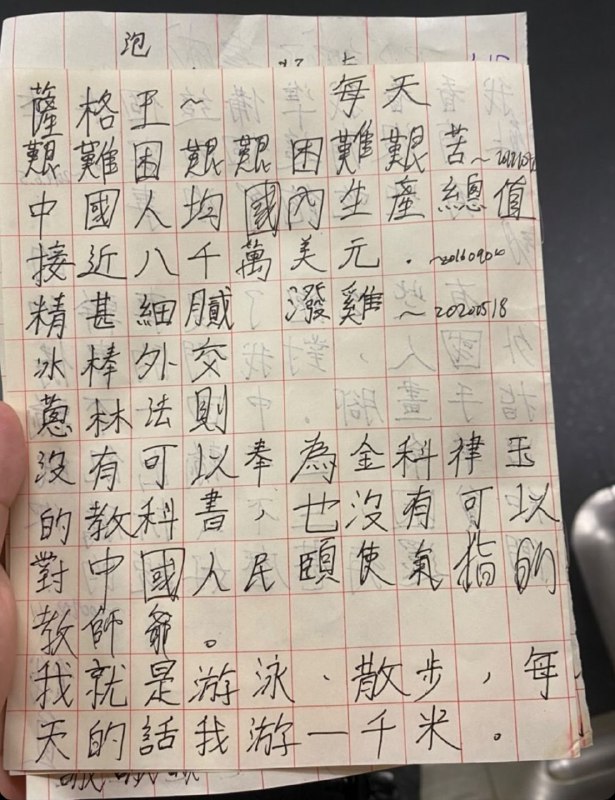 泡
薩格王~ 每天
艱難困艱艱困難艱苦~
中國人均國內生產總值
接近八千萬美元.~20160904
精甚細膩 潑雞~20200518
冰棒外交
蔥林法則
沒有可以奉為金科律玉
的教科書，也沒有可以
對中國人民頤使氣指的
教師爺。
我就是游泳、散步，每
天的話我游一千米。